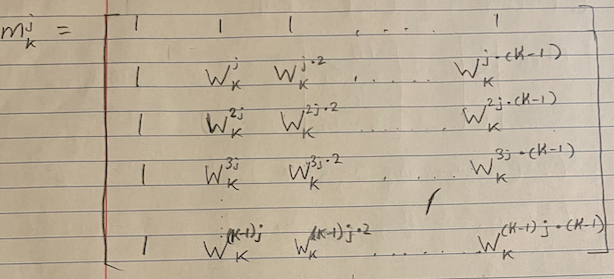 m_K^j = [ 1 1 1 . . . . . 1
1 W_K^j W_K^{j·2} . . . . . W_K^{j·(K-1)}
1 W_K^{2j} W_K^{2j·2} . . . . . W_K^{2j·(K-1)}
1 W_K^{3j} W_K^{3j·2} . . . . . W_K^{3j·(K-1)}
1 W_K^{(K-1)j} W_K^{(K-1)j·2} . . . . . W_K^{(K-1)j·(K-1)} ]